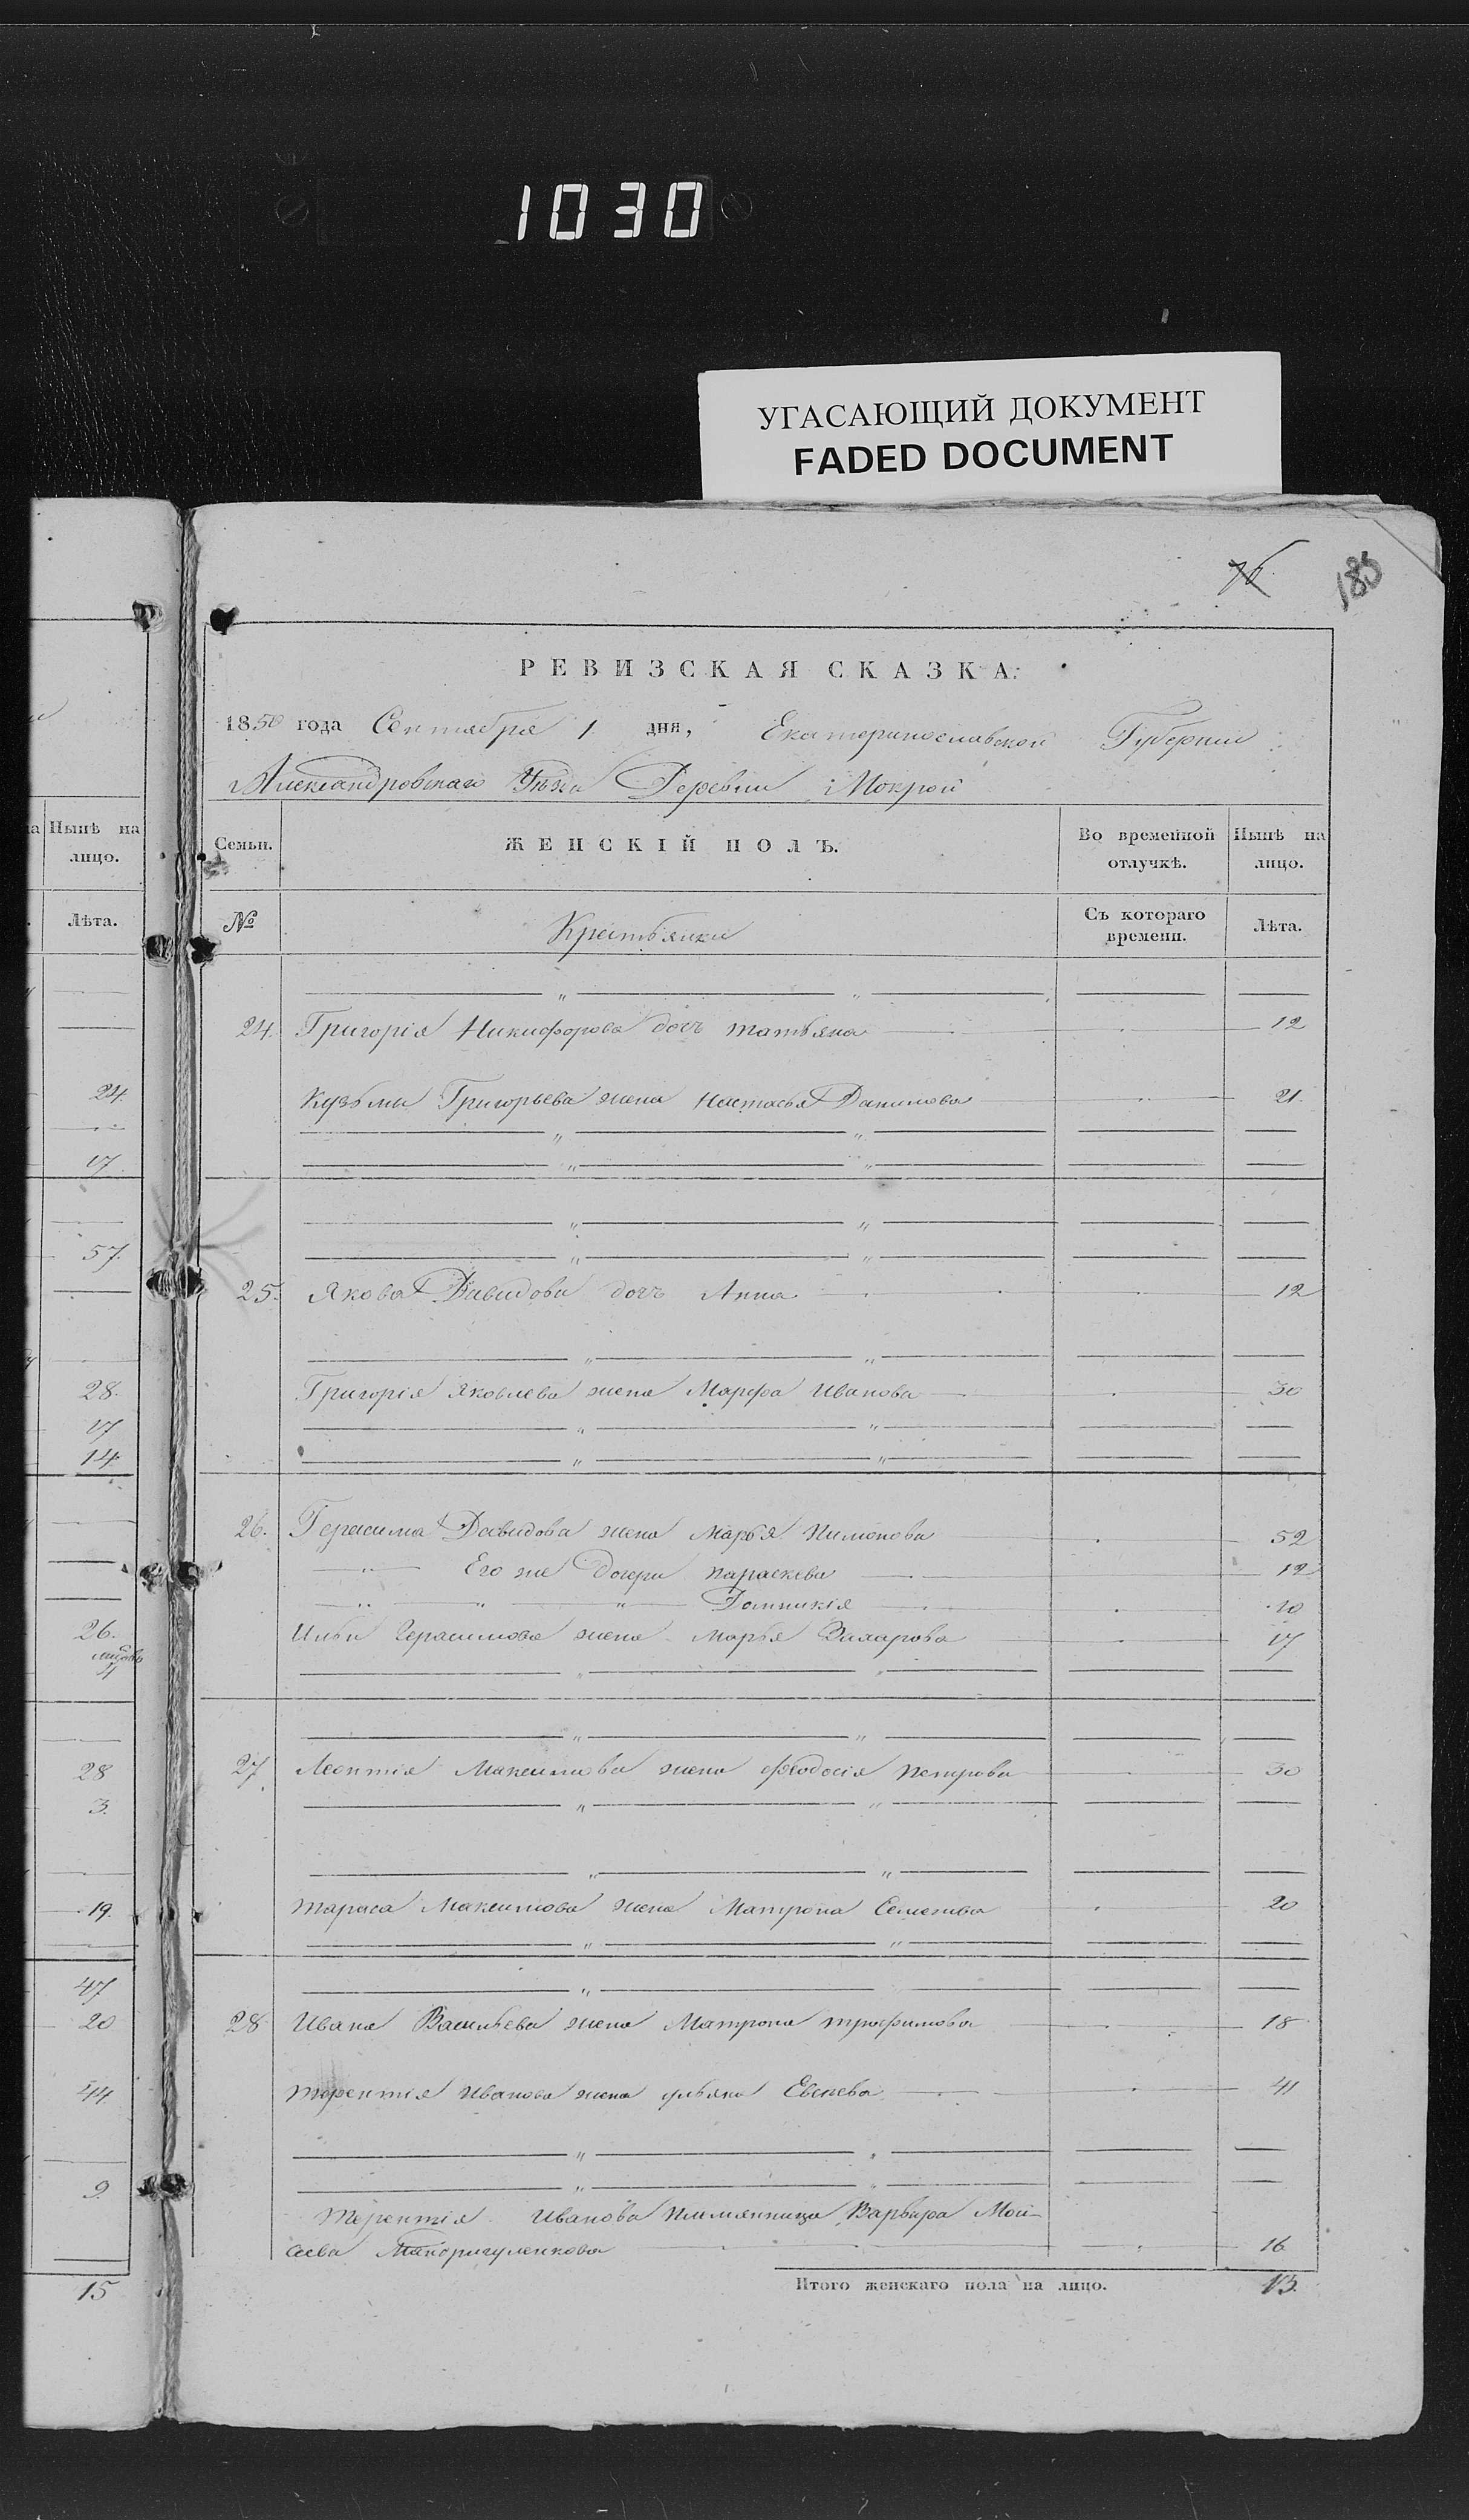 1030
УГАСАЮЩИЙ ДОКУМЕНТ
FADED DOCUMENT
76
183
РЕВИЗСКАЯ СКАЗКА.
1850 года Сентября 1 дня, Екатеринославской Губернии
Александровскаго Уѣзда Деревни Мокрой
Нынѣ на лицо.
Лѣта.
24.
17.
57.
28.
17
14.
26.
28
3.
19.
47
20
44
9.
15
Семьи. ЖЕНСКІЙ ПОЛЪ. Во временной отлучкѣ. Нынѣ на лицо.
№ Крестьянки Съ котораго времени. Лѣта.
24. Григорія Никифорова дочь татьяна 12
Кузьмы Григорьева жена Настасья Данилова 21.
25. Якова Давидова дочь Анна 12
Григорія Яковлева жена Марфа Иванова 30
26. Герасима Давидова жена Марья Пимонова 52
Его же Дочери параскева 12
Домникія 10
Ильи Герасимова жена Марья Захарова 17
27 Леонтія Максимова жена Феодосія петрова 30
тараса Максимова жена Матрона Семенова 20
28 Ивана Васильева жена Матрона трофимова 18
терентія Иванова жена ульяна Евсеева 41
терентія Иванова племянница Варвара Мои-
сеева 16
Итого женскаго пола на лицо. 13.